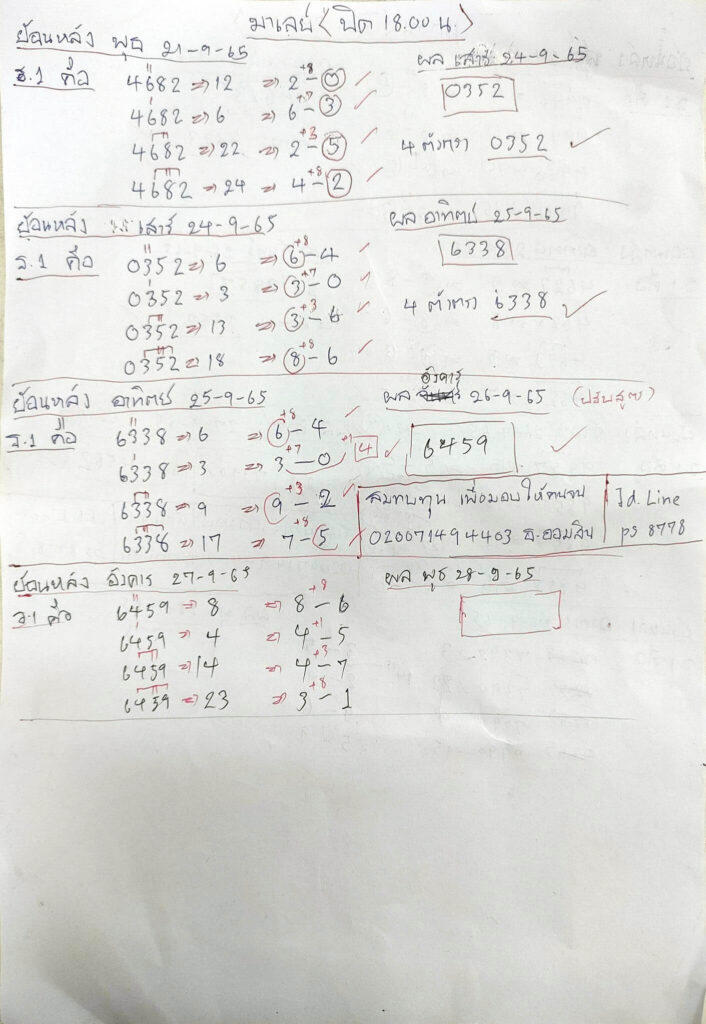 มาเลย์ (ปิด 18.00 น.)
ย้อนหลัง พุธ 21-9-65
ผล เสาร์ 24-9-65
ธ.1 คือ 4682 => 12 => 2 +8 - 0 ✓
0352
4682 => 6 => 6 +7 - 3 ✓
4682 => 22 => 2 +3 - 5 ✓
4 ตัวตรง 0352 ✓
4682 => 24 => 4 +8 - 2 ✓
ย้อนหลัง เสาร์ 24-9-65
ผล อาทิตย์ 25-9-65
ธ.1 คือ 0352 => 6 => 6 +8 - 4 ✓
6338
0352 => 3 => 3 +7 - 0 ✓
0352 => 13 => 3 +3 - 6 ✓
4 ตัวตรง 6338 ✓
0352 => 18 => 8 +8 - 6 ✓
ย้อนหลัง อาทิตย์ 25-9-65
ผล อังคาร 26-9-65 (ปรับสูตร)
ธ.1 คือ 6338 => 6 => 6 +8 - 4 ✓
6459 ✓
6338 => 3 => 3 +7 - 0 +1 4 ✓
6338 => 9 => 9 +3 - 2 ✓
6338 => 17 => 7 +8 - 5 ✓
สมทบทุน เพื่อมอบให้คนจน
020071494403 ธ.ออมสิน
Id.Line
ps 8778
ย้อนหลัง อังคาร 27-9-65
ผล พุธ 28-9-65
ธ.1 คือ 6459 => 8 => 8 +8 - 6
6459 => 4 => 4 +1 - 5
6459 => 14 => 4 +3 - 7
6459 => 23 => 3 +8 - 1